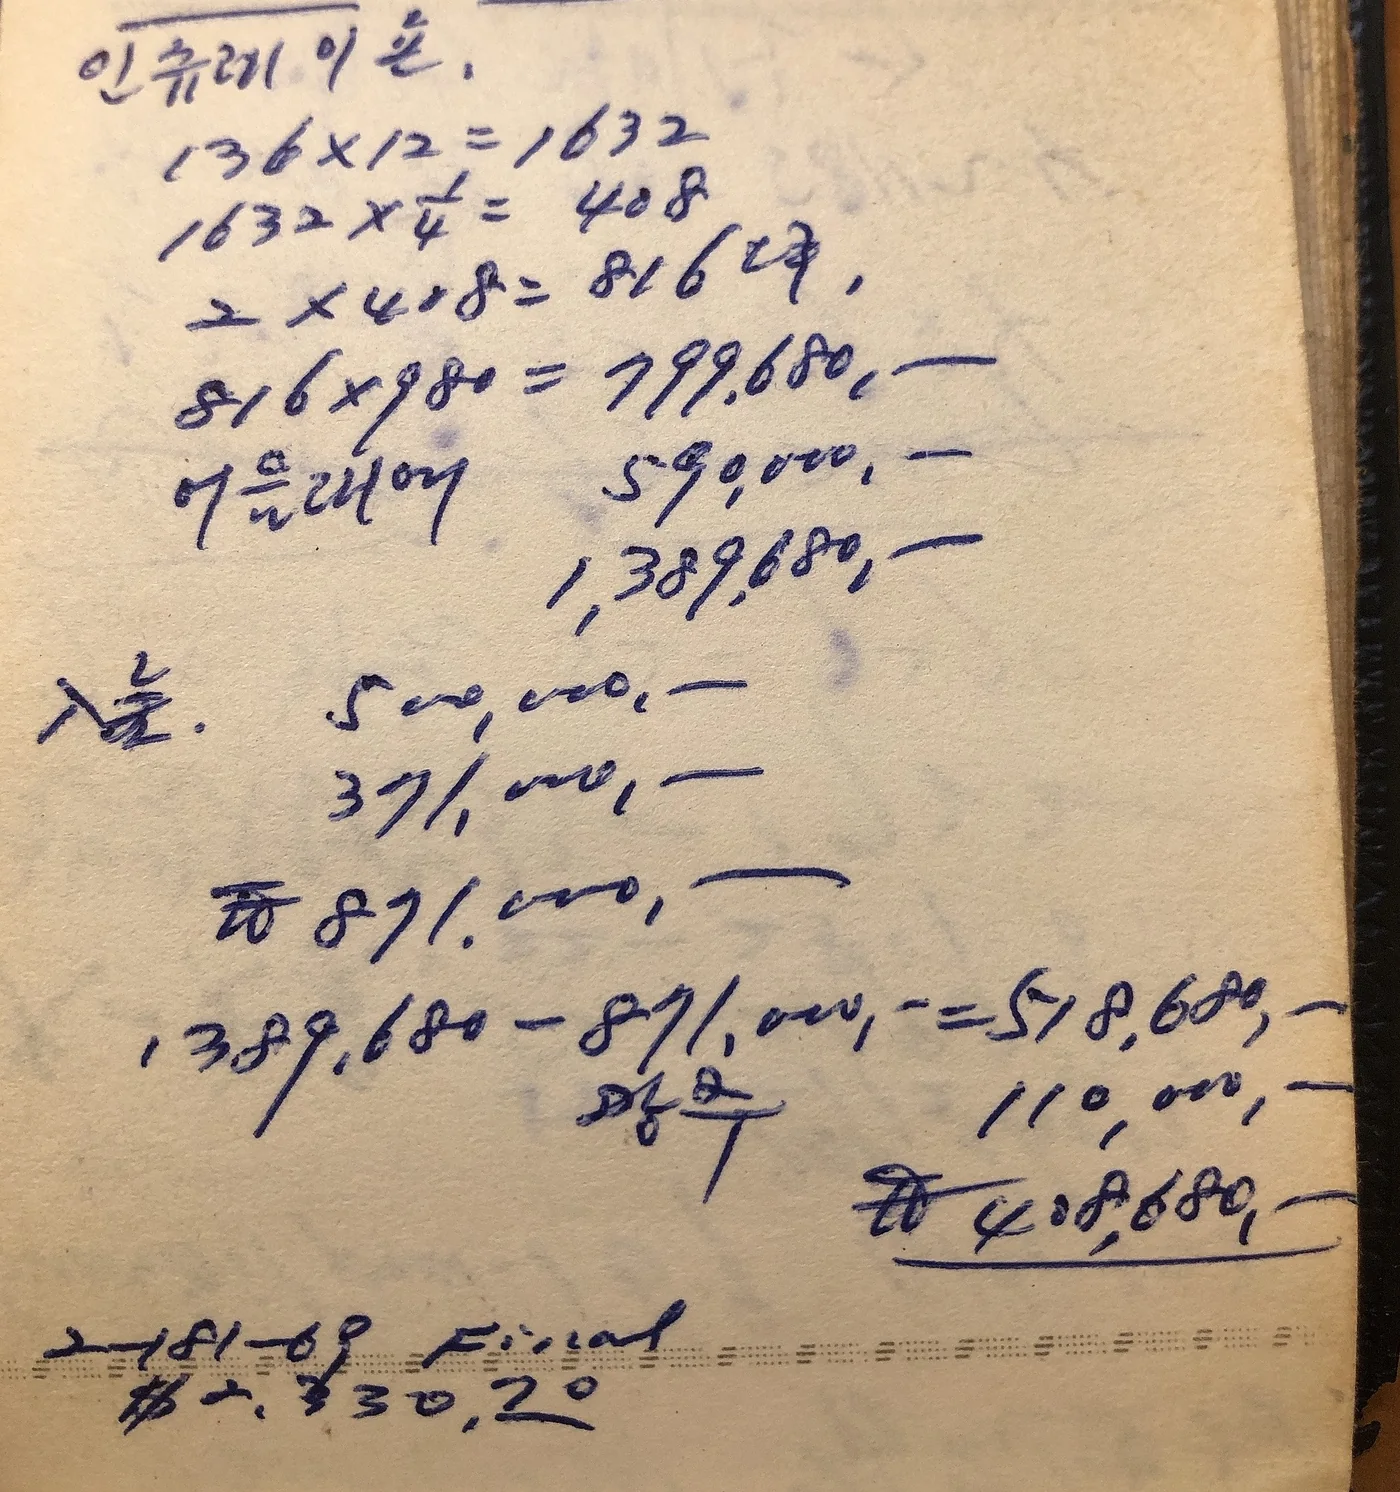 인슈레이숀.
136×12=1632
1632×¼= 408
2×408=816
816×980=799.680,—
어음래에 590,000,—
1,389.680,—
入출. 500,000,—
371,000,—
₩871.000,—
1389.680-871,000,-=518,680,—
110,000,—
₩408,680,—
2-181-69 Final
$2.330.20